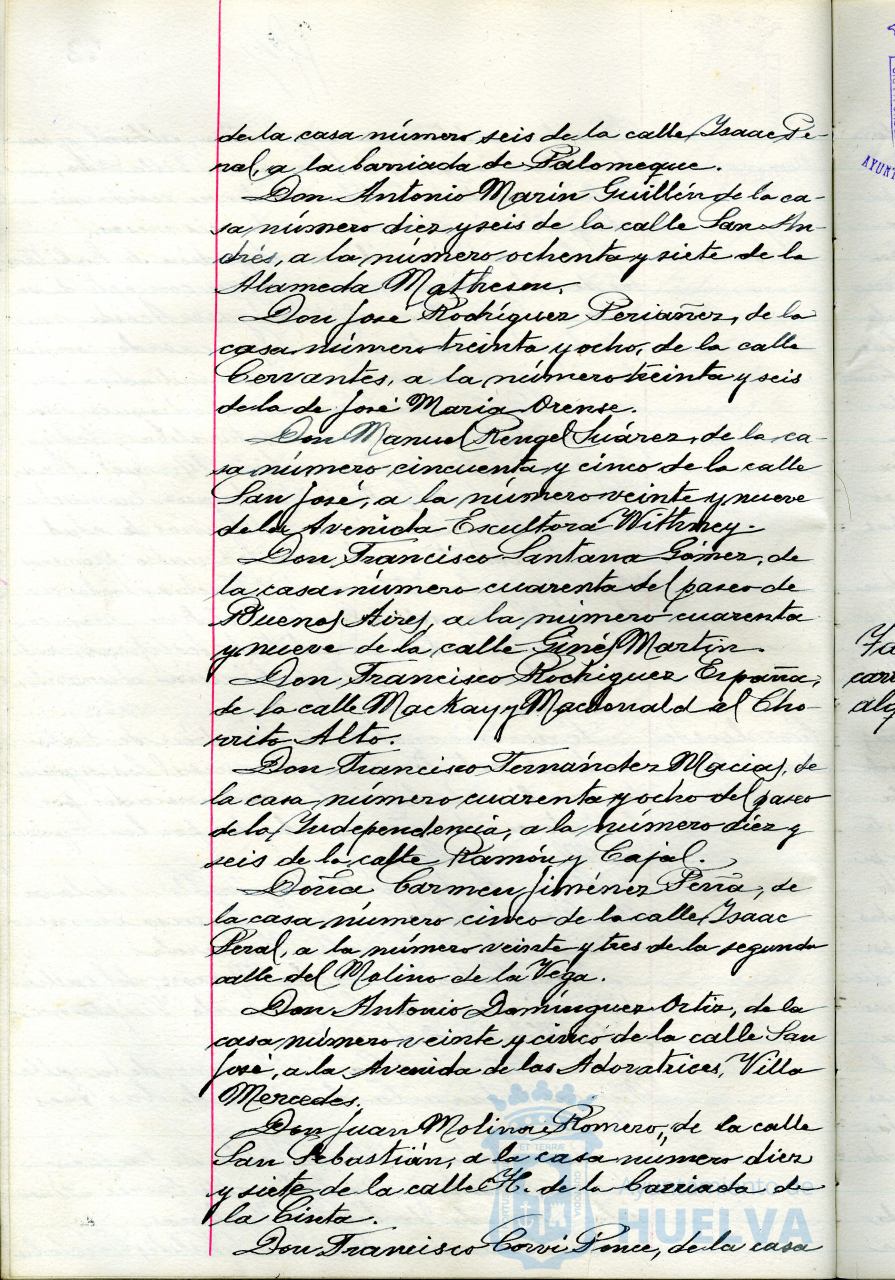 de la casa número seis de la calle Isaac Pe-
ral, a la barriada de Palomeque.
Don Antonio Marín Guillén de la ca-
sa número diez y seis de la calle San An-
drés, a la número ochenta y siete de la
Alameda Matheson.
Don José Rodríguez Periañez, de la
casa número treinta y ocho, de la calle
Cervantes, a la número treinta y seis
de la de José María Orense.
Don Manuel Rengel Suárez, de la ca-
sa número cincuenta y cinco de la calle
San José, a la número veinte y nueve
de la Avenida Escultora Withney.
Don Francisco Santana Gómez, de
la casa número cuarenta del paseo de
Buenos Aires, a la número cuarenta
y nueve de la calle Ginés Martín.
Don Francisco Rodríguez España,
de la calle Mackay y Macdonald al Cho-
rrito Alto.
Don Francisco Fernández Macias, de
la casa número cuarenta y ocho del paseo
de la Independencia, a la número diez y
seis de la calle Ramón y Cajal.
Doña Carmen Jiménez Peña, de
la casa número cinco de la calle Isaac
Peral, a la número veinte y tres de la segunda
calle del Molino de la Vega.
Don Antonio Domínguez Ortiz, de la
casa número veinte y cinco de la calle San
José, a la Avenida de las Adoratrices, Villa
Mercedes.
Don Juan Molina Romero, de la calle
San Sebastián, a la casa número diez
y siete de la calle H. de la Barriada de
la Cinta.
Don Francisco Corví Ponce, de la casa
Ayuntamiento de
HUELVA